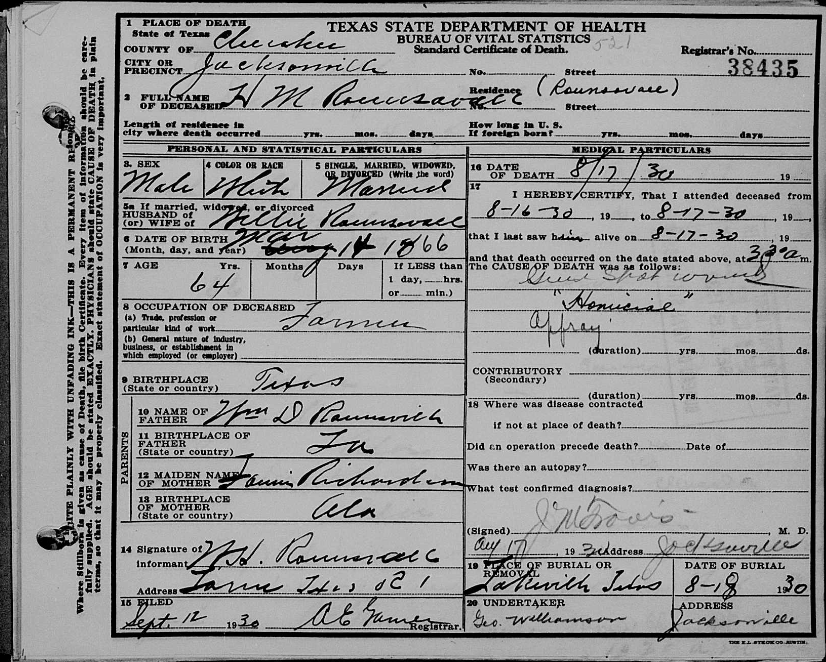 1 PLACE OF DEATH
TEXAS STATE DEPARTMENT OF HEALTH
State of Texas
BUREAU OF VITAL STATISTICS
COUNTY OF Cherokee
Standard Certificate of Death.
521
Registrar's No.
38435
CITY OR PRECINCT Jacksonville
No. Street
Residence (Rounsavall)
2 FULL NAME OF DECEASED H M Rounsavall
No. Street
Length of residence in city where death occurred yrs. mos. days
How long in U. S. If foreign born? yrs. mos. days
PERSONAL AND STATISTICAL PARTICULARS
3. SEX Male
4 COLOR OR RACE White
5 SINGLE, MARRIED, WIDOWED, OR DIVORCED (Write the word) Married
5a If married, widowed, or divorced
HUSBAND OF (or) WIFE of Willie Rounsavall
6 DATE OF BIRTH (Month, day, and year) Mar 14 1866
7 AGE Yrs. 64 Months Days If LESS than 1 day,....hrs. or........min.)
8 OCCUPATION OF DECEASED
(a) Trade, profession or particular kind of work Farmer
(b) General nature of industry, business, or establishment in which employed (or employer)
9 BIRTHPLACE (State or country) Texas
PARENTS
10 NAME OF FATHER Wm D Rounsville
11 BIRTHPLACE OF FATHER (State or country)
12 MAIDEN NAME OF MOTHER Richardson
13 BIRTHPLACE OF MOTHER (State or country) Ala
14 Signature of informant W.H. Rounsavall
Address Texas
15 FILED Sept. 12 1930 Registrar.
MEDICAL PARTICULARS
16 DATE OF DEATH 8/17/30 19
17 I HEREBY CERTIFY, That I attended deceased from
8-16-30, 19, to 8-17-30, 19
that I last saw him alive on 8-17-30, 19
and that death occurred on the date stated above, at m.
The CAUSE OF DEATH was as follows:
Gun Shot wound
"Homicial"
Affray
(duration) yrs. mos. ds.
CONTRIBUTORY (Secondary)
(duration) yrs. mos. ds.
18 Where was disease contracted
if not at place of death?
Did an operation precede death? Date of
Was there an autopsy?
What test confirmed diagnosis?
(Signed) J M Travis, M. D.
Aug 17 1930 Address Jacksonville
19 PLACE OF BURIAL OR REMOVAL Texas
DATE OF BURIAL 8-18 1930
20 UNDERTAKER Geo. Williamson
ADDRESS Jacksonville
THE E.L. STECK CO. AUSTIN.
WRITE PLAINLY WITH UNFADING INK—THIS IS A PERMANENT RECORD
Where Stillborn is given as cause of Death, file birth Certificate. Every item of information should be carefully supplied. AGE should be stated EXACTLY. PHYSICIANS should state CAUSE OF DEATH in plain terms, so that it may be properly classified. Exact statement of OCCUPATION is very important.